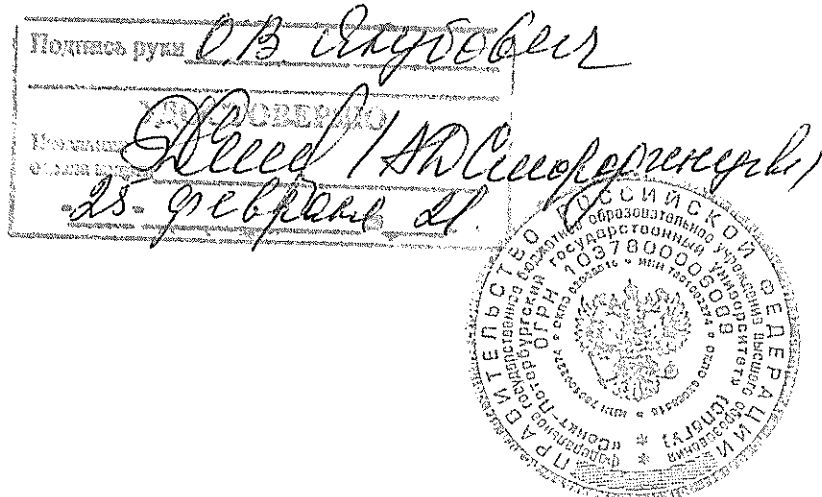 Подпись руки О.В Якубович
УДОСТОВЕРЯЮ
Начальник
отдела кадров
25 февраля 21.
ПРАВИТЕЛЬСТВО РОССИЙСКОЙ ФЕДЕРАЦИИ
федеральное государственное бюджетное образовательное учреждение высшего образования
«Санкт-Петербургский государственный университет» (СПбГУ)
ОГРН 1037800006089